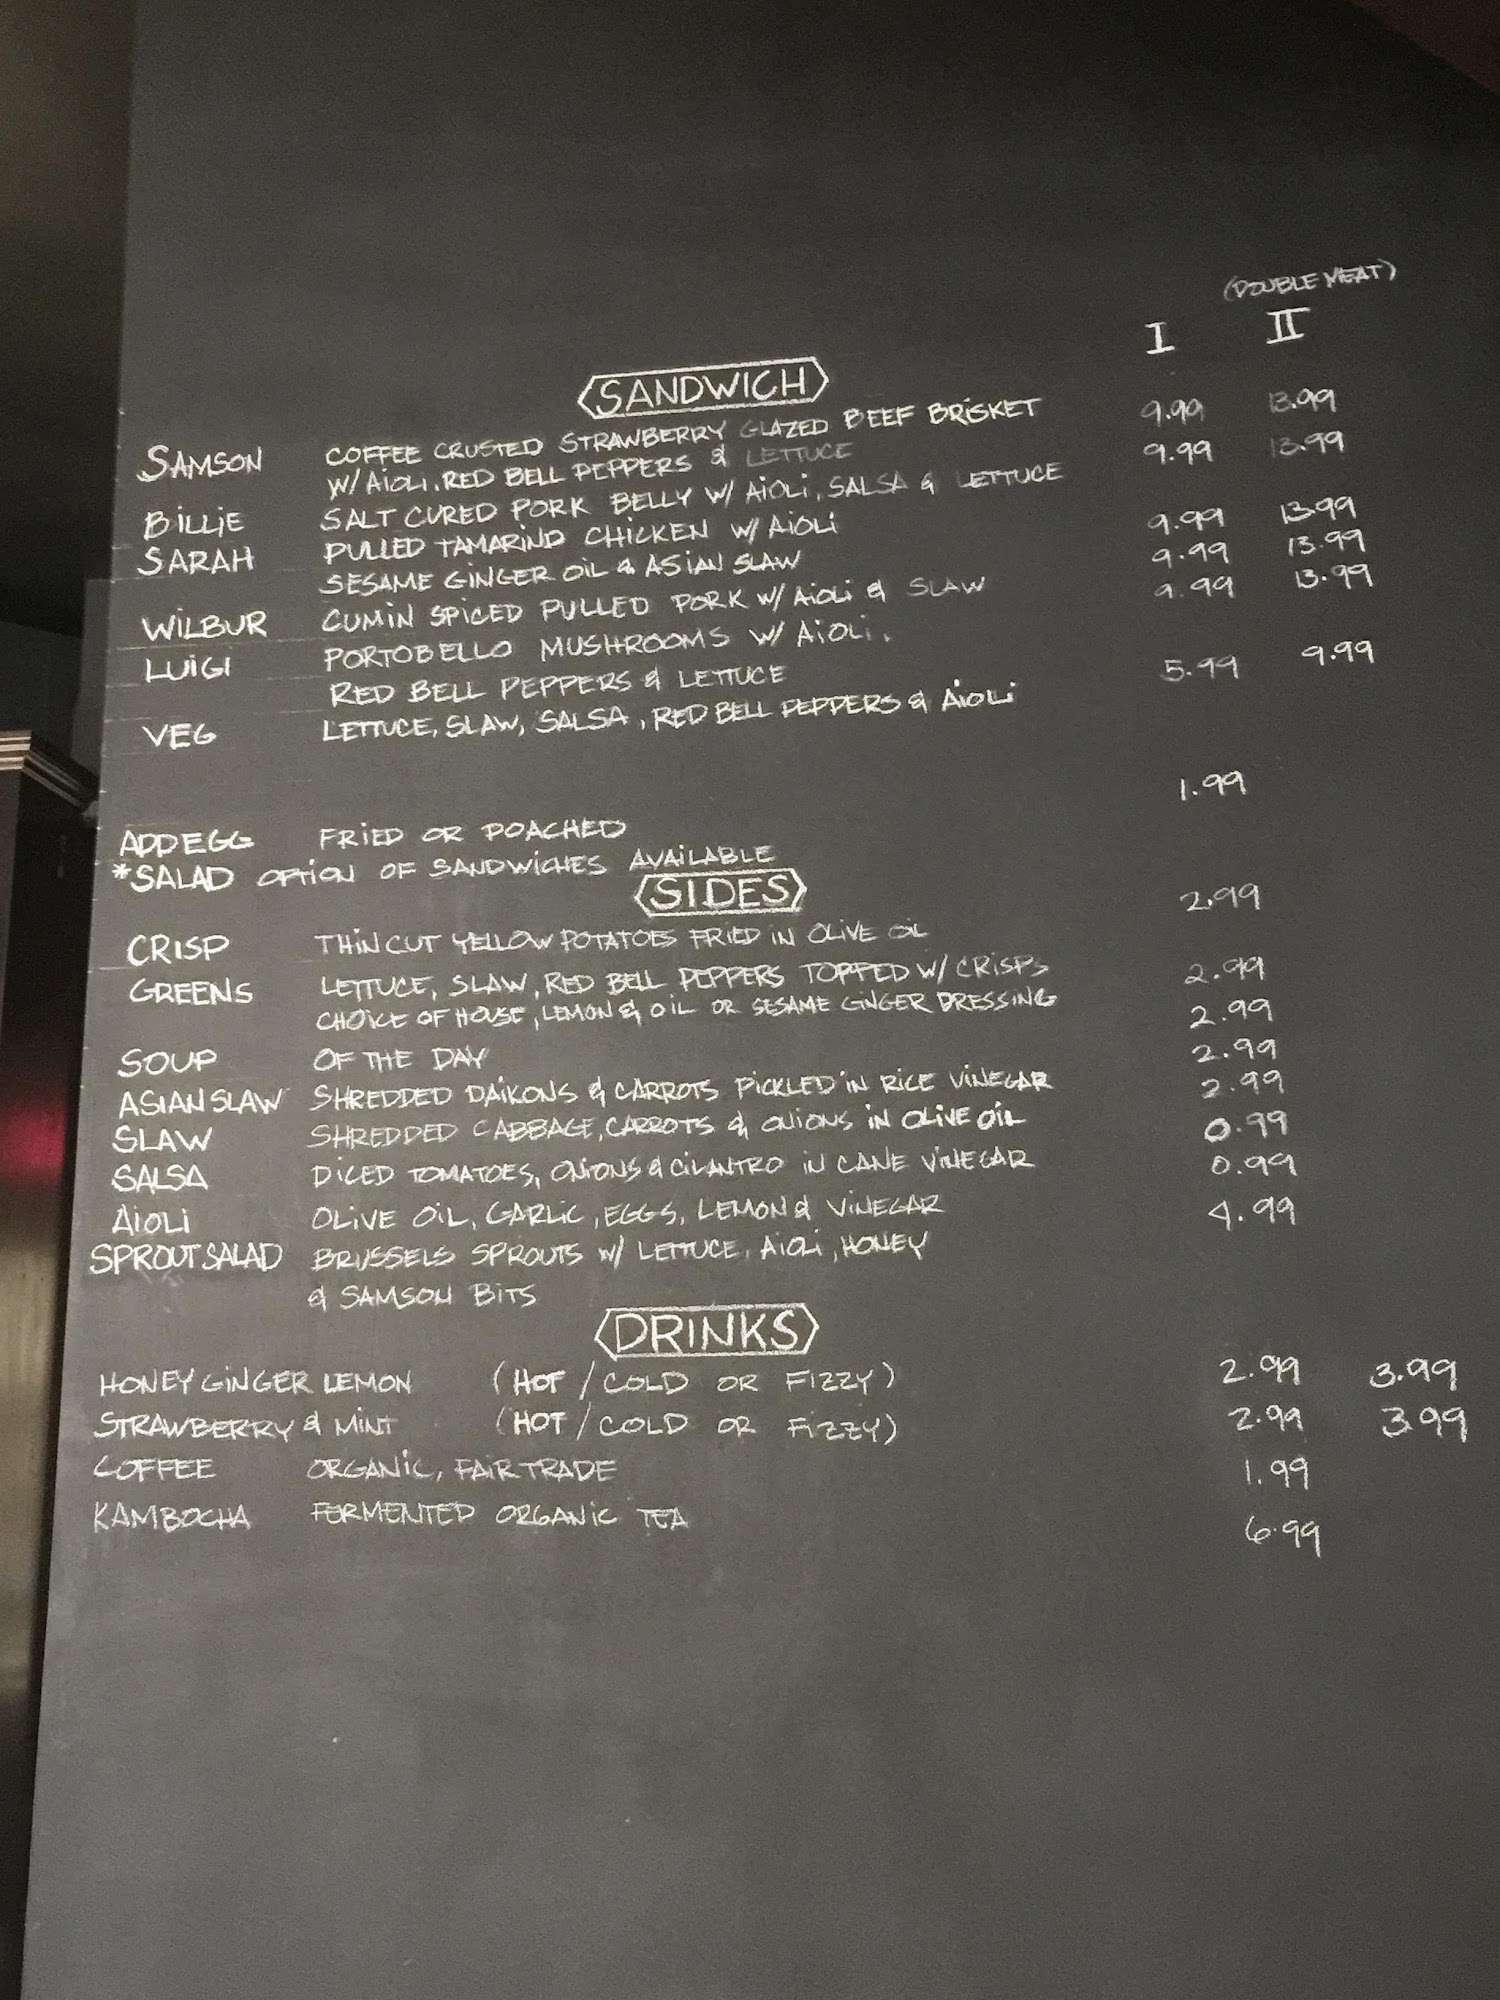 (DOUBLE MEAT)
I II
SANDWICH
SAMSON COFFEE CRUSTED STRAWBERRY GLAZED BEEF BRISKET 9.99 13.99
W/ AIOLI, RED BELL PEPPERS & LETTUCE
BILLIE SALT CURED PORK BELLY W/ AIOLI, SALSA & LETTUCE 9.99 13.99
SARAH PULLED TAMARIND CHICKEN W/ AIOLI 9.99 13.99
SESAME GINGER OIL & ASIAN SLAW
WILBUR CUMIN SPICED PULLED PORK W/ AIOLI & SLAW 9.99 13.99
LUIGI PORTOBELLO MUSHROOMS W/ AIOLI, 9.99 13.99
RED BELL PEPPERS & LETTUCE
VEG LETTUCE, SLAW, SALSA, RED BELL PEPPERS & AIOLI 5.99 9.99
ADD EGG FRIED OR POACHED 1.99
*SALAD OPTION OF SANDWICHES AVAILABLE
SIDES
CRISP THIN CUT YELLOW POTATOES FRIED IN OLIVE OIL 2.99
GREENS LETTUCE, SLAW, RED BELL PEPPERS TOPPED W/ CRISPS 2.99
CHOICE OF HOUSE, LEMON & OIL OR SESAME GINGER DRESSING
SOUP OF THE DAY 2.99
ASIAN SLAW SHREDDED DAIKONS & CARROTS PICKLED IN RICE VINEGAR 2.99
SLAW SHREDDED CABBAGE, CARROTS & ONIONS IN OLIVE OIL 2.99
SALSA DICED TOMATOES, ONIONS & CILANTRO IN CANE VINEGAR 0.99
AIOLI OLIVE OIL, GARLIC, EGGS, LEMON & VINEGAR 0.99
SPROUT SALAD BRUSSELS SPROUTS W/ LETTUCE, AIOLI, HONEY 4.99
& SAMSON BITS
DRINKS
HONEY GINGER LEMON (HOT / COLD OR FIZZY) 2.99 3.99
STRAWBERRY & MINT (HOT / COLD OR FIZZY) 2.99 3.99
COFFEE ORGANIC, FAIR TRADE 1.99
KAMBOCHA FERMENTED ORGANIC TEA 6.99